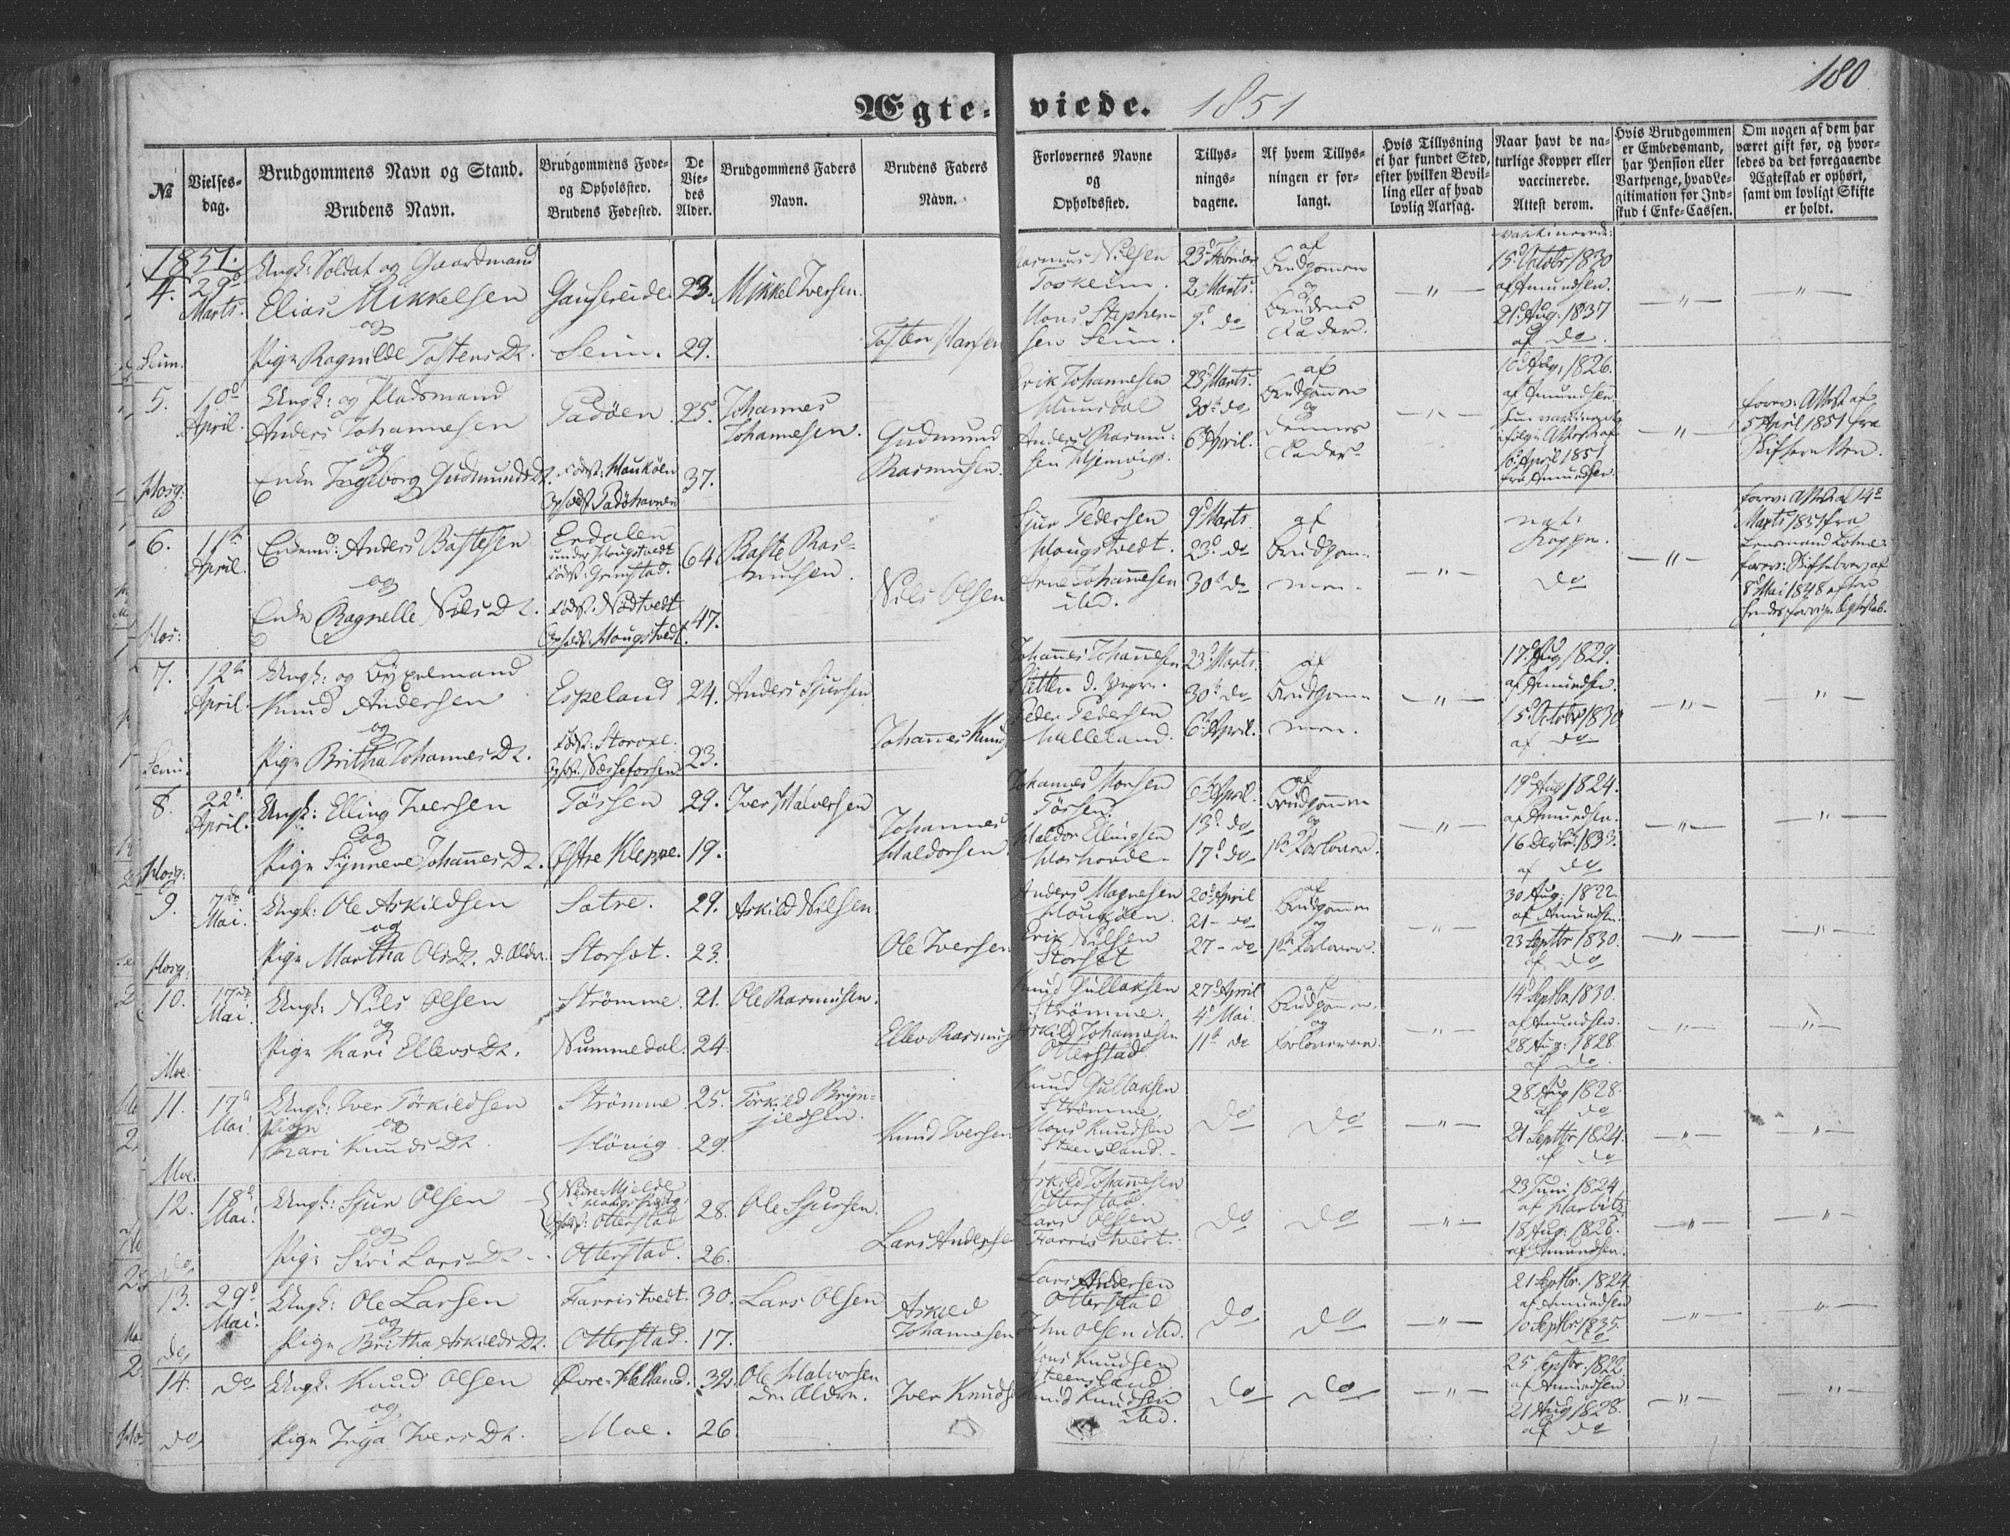 180
Ægte-viede. 1851
№
Vielses-
dag.
Brudgommens Navn og Stand.
Brudens Navn.
Brudgommens Føde-
og Opholssted.
Brudens Fødested.
De
Vie-
des
Alder.
Brudgommens Faders
Navn.
Brudens Faders
Navn.
Forlovernes Navne
og
Opholdssted.
Tillys-
nings-
dagene.
Af hvem Tillys-
ningen er for-
langt.
Hvis Tillysning
ei har fundet Sted,
efter hvilken Bevil-
ling eller af hvad
lovlig Aarsag.
Naar havt de na-
turlige Kopper eller
vaccinerede.
Attest derom.
Hvis Brudgommen
er Embedsmand,
har Pension eller
Vartpenge, hvad Le-
gitimation for Ind-
skud i Enke-Cassen.
Om nogen af dem har
været gift før, og hvor-
ledes da det foregaaende
Ægteskab er ophørt,
samt om lovligt Skifte
er holdt.
1851.
4. 29d Marts.
Ungk: Soldat og Gaardmand
Elias Mikkelsen
og
Pige Ragnilde Tostens Dt.
Seim.
Seim. 29.
23.
Mikkel Iversen.
Rasmus Nilsen
Mons Stephen-
sen Seim.
23d Februar
2 Marts.
9d do
af
Brudgommen
og
Brudens
Fader.
15 Octobr 1830
af Amundsen.
21 Aug: 1837
af do.
5. 10d April.
Ungk: og Pladsmand
Anders Johannesen
og
Enke Ingeborg Gudmunds Dt.
Hosg:
Padøen 25.
37.
Johannes
Johannesen.
Gudmund
Rasmusen.
Erik Johannesen
Anders Rasmu-
sen
23d Marts.
30te do
6te April.
af
Brudgommen
og
Fader
1826.
af Amundsen.
6 April 1851
fra Amundsen.
forev: Attest af
5 April 1851 fra
Skifteretten.
6. 11te April.
Enkemd: Anders Bastesen
og
Enke Ragnelle Niels Dt.
Hos:
Erdalen
under Hougstvedt
Fødst: Grimstad.
Fødst: Nødtvedt
Opholdst: Hougstvedt.
64.
47.
Baste Ras-
musen.
Nils Olsen
Sjur Pedersen
Hougstvedt.
Arne Johannesen
ibd.
9d Marts
23d do
30te do
af
Brudgom-
men.
nat:
Kopper.
do
forev: Attest af 14d
Marts 1851 fra
Lensmand
forev: Skiftebrev af
8 Mai 1848 efter
hendes forrige Ægteskab.
7. 12te April.
Ungk: og Bøxelmand
Knud Andersen
og
Pige Britha Johannes Dt.
Seim.
Espeland 24.
23.
Anders Sjursen
Johannes Knud
Johannes Johannesen
Peder Pedersen
Halleland.
23d Marts.
30te do
6te April.
af
Brudgom-
men.
17 Aug 1829.
af Amundsen.
15 Octobr 1830
af do
8. 22d April.
Ungk: Elling Iversen
og
Pige Synneve Johannes Dt.
Hosg:
Tøssen 29.
Østre Kleppe. 19.
Iver Halversen
Johannes
Haldorsen
Johannes Monsen
Tøssen.
Haldor Ellingsen
6te April.
13d do
17d do
af
Brudgommen
og
1ste Forlover.
19d Aug 1824.
af Amundsen.
16 Decbr. 1833.
af do
9. 7de Mai.
Ungk: Ole Askildsen
og
Pige Martha Ols Dt. d. Ældre.
Hosg.
Satre. 29.
Storset. 23.
Askild Nilsen
Ole Iversen
Anders Magnesen
Erik Nilsen
Storset
20d April
21- do
27- do
af
Brudgommen
og
1ste Forlover.
30 Aug: 1822.
af Amundsen.
23 Septbr 1830.
af do
10. 17de Mai.
Ungk: Nils Olsen
og
Pige Kari Ellevs Dt.
Moe.
Strømme. 21.
Nummedal. 24.
Ole Rasmusen.
Ellev Rasmus
Knud Gullaksen
Strømme.
Askild Johannesen
Otterstad
27d April
4d Mai
11d do
af
Brudgommen
og
Forloveren.
14 Septbr 1830.
af Amundsen.
28 Aug: 1828.
af do.
11. 17d Mai.
Ungk: Iver Torkildsen
Pige og
Kari Knuds Dt.
Moe.
Strømme 25.
Hønig 29.
Torkild Bryn-
jildsen.
Knud Iversen
Knud Gullaksen
Strømme,
Mons Knudsen
Steensland.
do
do
28 Aug 1828.
af do
21 Septbr 1824.
af do
12. 18d Mai.
Ungk: Sjur Olsen
og
Pige Siri Lars Dt.
do,
Nedre Mjelde
Opholdst: Otterstad
Otterstad.
28.
26.
Ole Sjursen.
Lars Andersen
Askild Johannesen
Otterstad
Lars Olsen
Farristvedt.
do
do
23 Juni 1824
18 Aug: 1828.
af Amundsen.
13. 29d Mai.
Ungk: Ole Larsen
og
Pige Britha Askilds Dt.
do,
Farristvedt. 30.
Otterstad. 17.
Lars Olsen
Askild
Johannesen
Lars Andersen
Otterstad
John Olsen ibd.
do
do
21 Septbr. 1824.
af Amundsen
10 Septbr 1835.
do
14. do
Ungk: Knud Olsen
og
Pige Inga Ivers Dt.
do,
Øvre-Helland. 32.
Moe. 26.
Ole Halvorsen
den Ældre.
Iver Knuds
Mons Knudsen
Steensland
Knud Knudsen
ibd.
do
do
25 Septbr. 1822
af Amundsen
21 Aug 1828.
af do